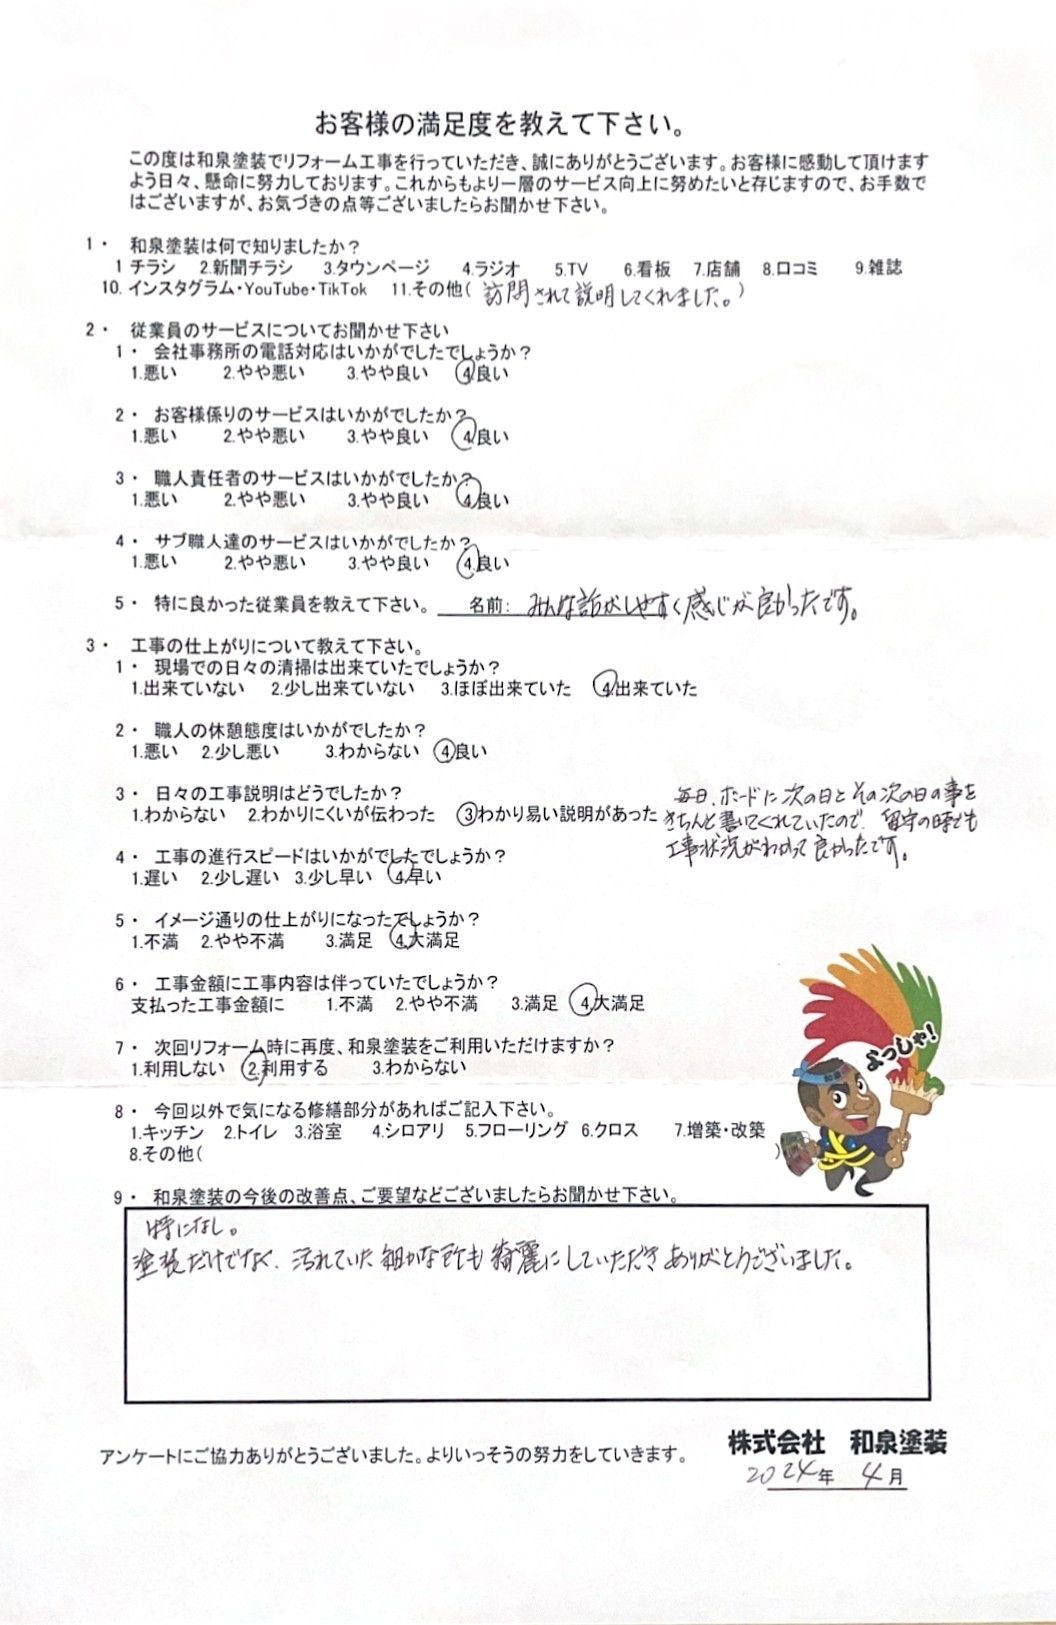 お客様の満足度を教えて下さい。
この度は和泉塗装でリフォーム工事を行っていただき、誠にありがとうございます。お客様に感動して頂けます
よう日々、懸命に努力しております。これからもより一層のサービス向上に努めたいと存じますので、お手数で
はございますが、お気づきの点等ございましたらお聞かせ下さい。
1・ 和泉塗装は何で知りましたか？
1 チラシ 2.新聞チラシ 3.タウンページ 4.ラジオ 5.TV 6.看板 7.店舗 8.口コミ 9.雑誌
10. インスタグラム・YouTube・TikTok 11.その他( 訪問されて説明してくれました。)
2・ 従業員のサービスについてお聞かせ下さい
1・ 会社事務所の電話対応はいかがでしたでしょうか？
1.悪い 2.やや悪い 3.やや良い 4.良い
2・ お客様係りのサービスはいかがでしたか？
1.悪い 2.やや悪い 3.やや良い 4.良い
3・ 職人責任者のサービスはいかがでしたか？
1.悪い 2.やや悪い 3.やや良い 4.良い
4・ サブ職人達のサービスはいかがでしたか？
1.悪い 2.やや悪い 3.やや良い 4.良い
5・ 特に良かった従業員を教えて下さい。 名前: みんな話がしやすく感じが良かったです。
3・ 工事の仕上がりについて教えて下さい。
1・ 現場での日々の清掃は出来ていたでしょうか？
1.出来ていない 2.少し出来ていない 3.ほぼ出来ていた 4.出来ていた
2・ 職人の休憩態度はいかがでしたか？
1.悪い 2.少し悪い 3.わからない 4良い
3・ 日々の工事説明はどうでしたか？
1.わからない 2.わかりにくいが伝わった 3わかり易い説明があった
毎日、ボードに次の日とその次の日の事を
きちんと書いてくれていたので、留守の時でも
工事状況がわかって良かったです。
4・ 工事の進行スピードはいかがでしたでしょうか？
1.遅い 2.少し遅い 3.少し早い 4.早い
5・ イメージ通りの仕上がりになったでしょうか？
1.不満 2.やや不満 3.満足 4.大満足
6・ 工事金額に工事内容は伴っていたでしょうか？
支払った工事金額に 1.不満 2.やや不満 3.満足 4.大満足
7・ 次回リフォーム時に再度、和泉塗装をご利用いただけますか？
1.利用しない 2.利用する 3.わからない
よっしゃ!
和泉
8・ 今回以外で気になる修繕部分があればご記入下さい。
1.キッチン 2.トイレ 3.浴室 4.シロアリ 5.フローリング 6.クロス 7.増築・改築
8.その他( )
9・ 和泉塗装の今後の改善点、ご要望などございましたらお聞かせ下さい。
特になし。
塗装だけでなく、汚れていた細かな所も綺麗にしていただきありがとうございました。
アンケートにご協力ありがとうございました。よりいっそうの努力をしていきます。
株式会社 和泉塗装
2024年 4月